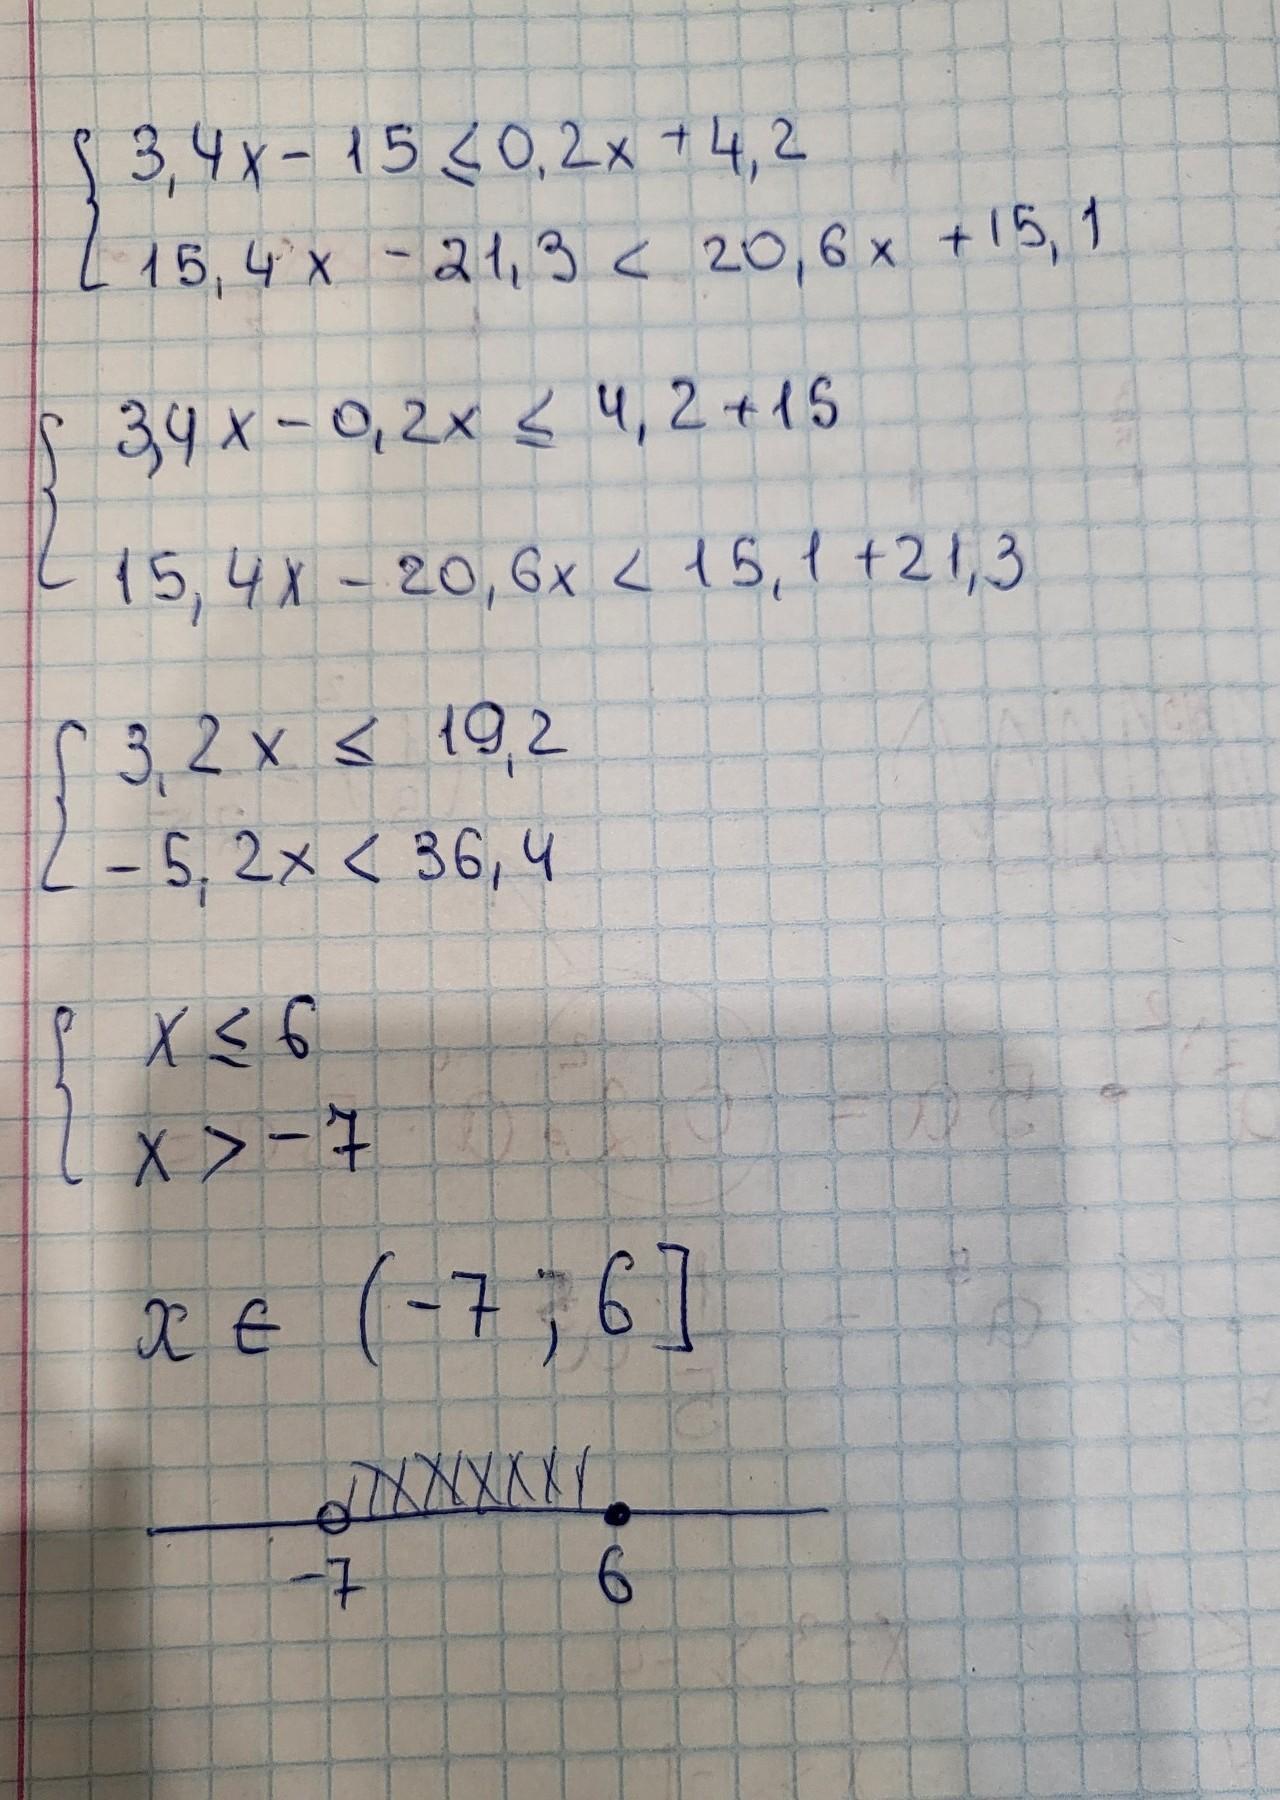 3,4x - 15 ≤ 0,2x + 4,2
15,4x - 21,3 < 20,6x + 15,1
3,4x - 0,2x ≤ 4,2 + 15
15,4x - 20,6x < 15,1 + 21,3
3,2x ≤ 19,2
-5,2x < 36,4
x ≤ 6
x > -7
x ∈ (-7 ; 6]
-7 6